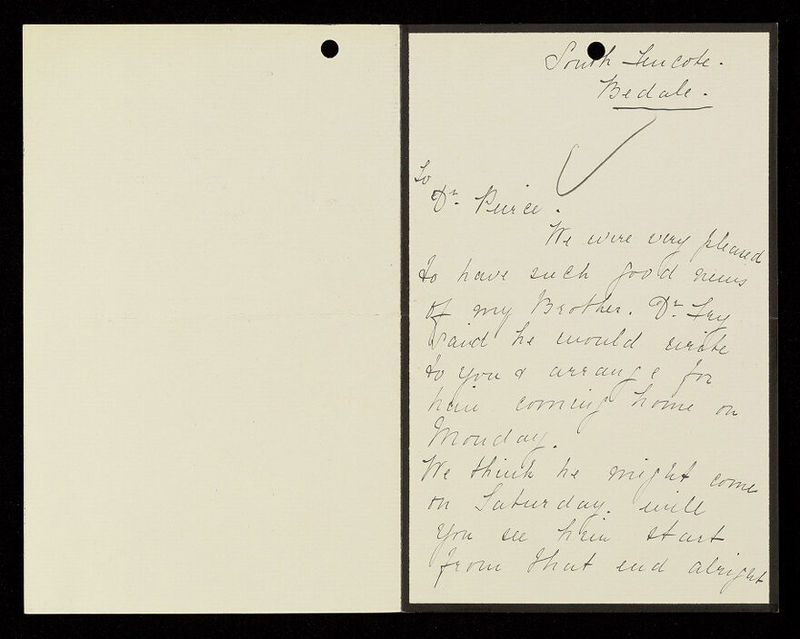 South Lencote.
Bedale.
To
Dr. Pierce.
We were very pleased
to have such good news
of my Brother. Dr. Fry
said he would write
to you & arrange for
him coming home on
Monday.
We think he might come
on Saturday. will
you see him start
from that end alright